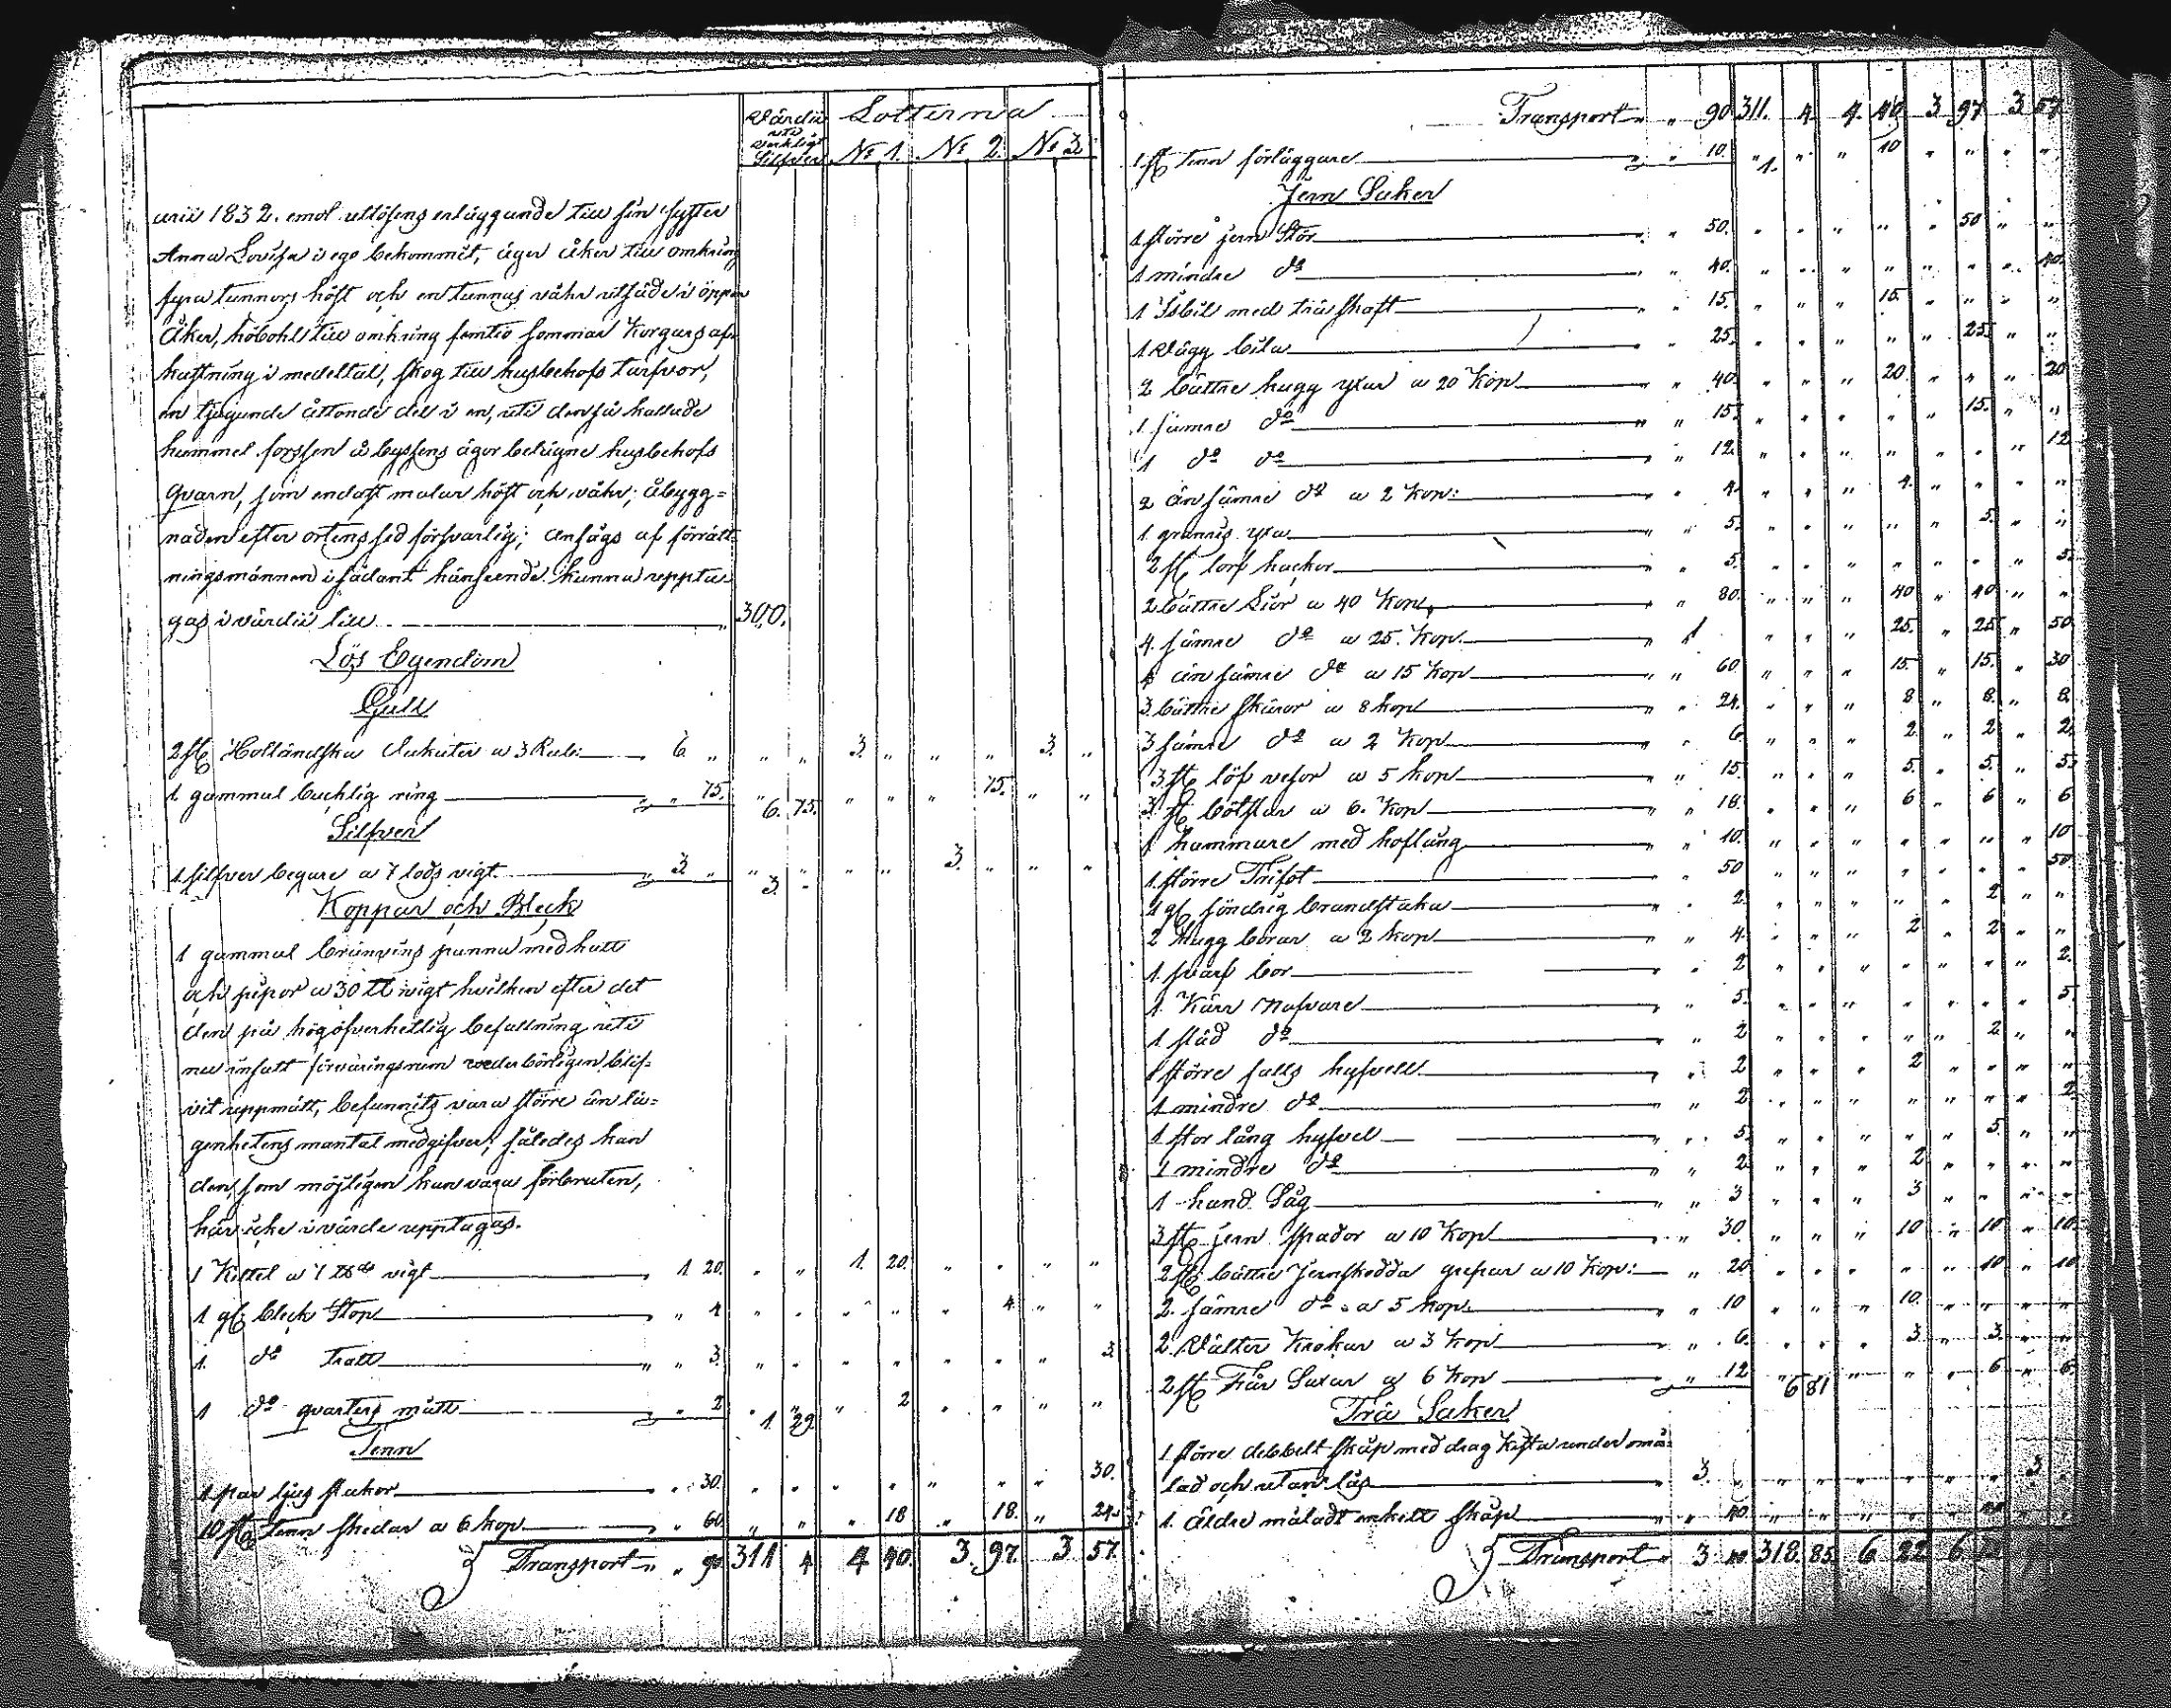 Värdie uti verkligt Silfver
Lotterna
No 1. No 2. No 3.
arii 1832. emot utlösens erläggande till sin syster
Anna Lovisa i ego bekommit, äger åker till omkring
fyra tunnors höst och en tunnas våhr utsäde i öppen
Åker, höbohl till omkring femtio sommar Korgars af-
kastning i medeltal, skog till husbehofs tarfvor,
en tjugunde åttonde del i en, uti den så kallade
hummel forssen å byssens ägor belägne husbehofs
Qvarn, som endast malar höst och våhr; åbygg=
naden efter ortens sed försvarlig; ansågs af förrätt
ningsmännen i sådant hänseende kunna uppta
gas i värdie till 300.
Lös Egendom
Gull
2 st Holländska Dukater a 3 Rub: 6 " " " 3. " " " 3. "
1 gammal bucklig ring " 75. " 6. 75. " " " 75. " "
Silfver
1 silfver begare a 7 lods vigt " 3 " " 3. " " " 3. " " "
Koppar och Bleck
1 gammal bränvins panna med hatt
och pipor a 30 ℔ vigt hvilken efter det
den på hög öfverhetlig befallning uti
nu insatt förvaringsrum wederbörligen blif=
vit uppmätt, befunnits vara större än lä=
genhetens mantal medgifver; således kan
den, som möjligen kan vara förbruten,
här icke i värde upptagas.
1 Kittel a 1 ℔ds vigt 1 20. " " 1. 20. " " " "
1 gl bleck Stop " 4 " " " " " 4. " "
1. do Tratt " 3. " " " " " " " 3
1 do qvarters mått " 2 " 1 29. " 2 " " " "
Tenn
1 par ljus stakar " 30. " " " " " " " 30.
10 st Tenn skedar a 6 kop " 60. " " " 18 " 18. " 24.
Transport " 90 311 4 4 40. 3. 97. 3 57.
Transport " 90 311. 4. 4. 40 3 97. 3 57.
1 st tenn förläggare " 10. " 1. " " 10 " " " "
Jern Saker
1 större jern Stör " 50. " " " " " 50 " "
1 mindre do " 40. " " " " " " " 40.
1 Isbill med trä skaft " 15. " " " 15. " " " "
1 Vägg bila " 25. " " " " " 25. " "
2 bättre hugg yxar a 20 Kop " 40. " " " 20. " " " 20
1 sämre do " 15. " " " " " 15. " "
1 do do " 12. " " " " " " " 12
2 än sämre do a 2 kop: " 4. " " " 4. " " " "
1 grannis yxa " 5. " " " " " 5. " "
2 st torf hackor " 5. " " " " " " " 5.
2 bättre Liar a 40 Kop " 80. " " " 40 " 40. " "
4. sämre do a 25. Kop. " 1 " " " 25. " 25. " 50
4 än sämre do a 15 Kop " 60 " " " 15. " 15. " 30
3. bättre skäror a 8 kop " 24. " " " 8 " 8. " 8.
3 sämre do a 2 Kop " 6. " " " 2. " 2 " 2.
3 st löf vesor a 5 kop " 15. " " " 5. " 5. " 5.
3. st bötslar a 6. Kop " 18. " " " 6 " 6 " 6
1 hammare med hoftång " 10. " " " " " " " 10
1. större Trifot " 50 " " " " " " " 50.
1 gl söndrig brandstake " 2. " " " " " 2 " "
2 hugg borar a 2 kop " 4. " " " 2 " 2 " "
1. svarf bor " 2 " " " " " " " 2.
1. Kärr Nafvare " 5. " " " " " " " 5.
1 släd do " 2 " " " " " 2 " "
1 större falls hyfvell " 2 " " " 2 " " " "
1 mindre do " 2 " " " " " " " 2.
1 stor lång hyfvel " 5. " " " " " 5. " "
1 mindre do " 2. " " " 2 " " " "
1 hand Såg " 3 " " " 3 " " " "
3 st jern spador a 10 Kop " 30. " " " 10 " 10 " 10.
2 st bättre Jernskodda grepar a 10 Kop: " 20 " " " " " 10 " 10
2. sämre do a 5 kop " 10 " " " 10. " " " "
2. Välter Krokar a 3 Kop " 6. " " " 3. " 3. " "
2 st Får Saxar a 6 Kop " 12 " 6 81 " " " 6 " 6.
Trä Saker
1 större dubbelt skåp med drag Kista under omå=
lad och utan lås 3. " " " " " " " 3.
1. Äldre måladt enkelt skåp " 40. " " " " " 40 " "
Transport 3 40 318. 85. 6 22 6